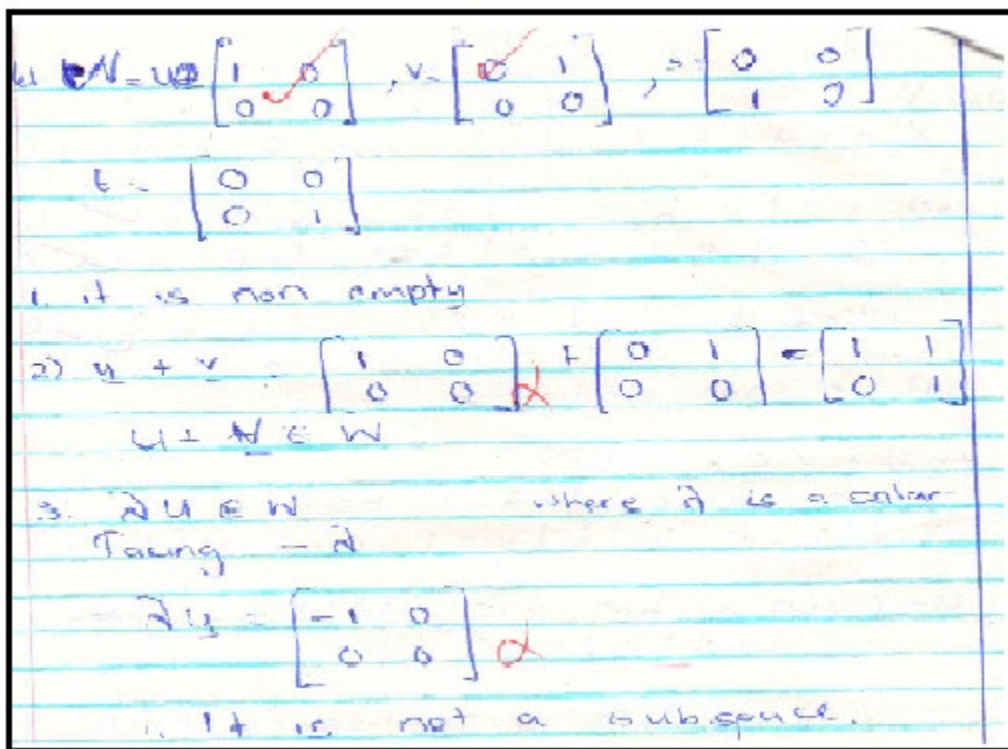 W = u = [1 0 / 0 0], v = [0 1 / 0 0], s = [0 0 / 1 0]
t = [0 0 / 0 1]
1. it is non empty
2) u + v = [1 0 / 0 0] + [0 1 / 0 0] = [1 1 / 0 1]
u + v ∈ W
3. λu ∈ W where λ is a scalar
Taking -λ
λu = [-1 0 / 0 0]
∴ It is not a subspace.